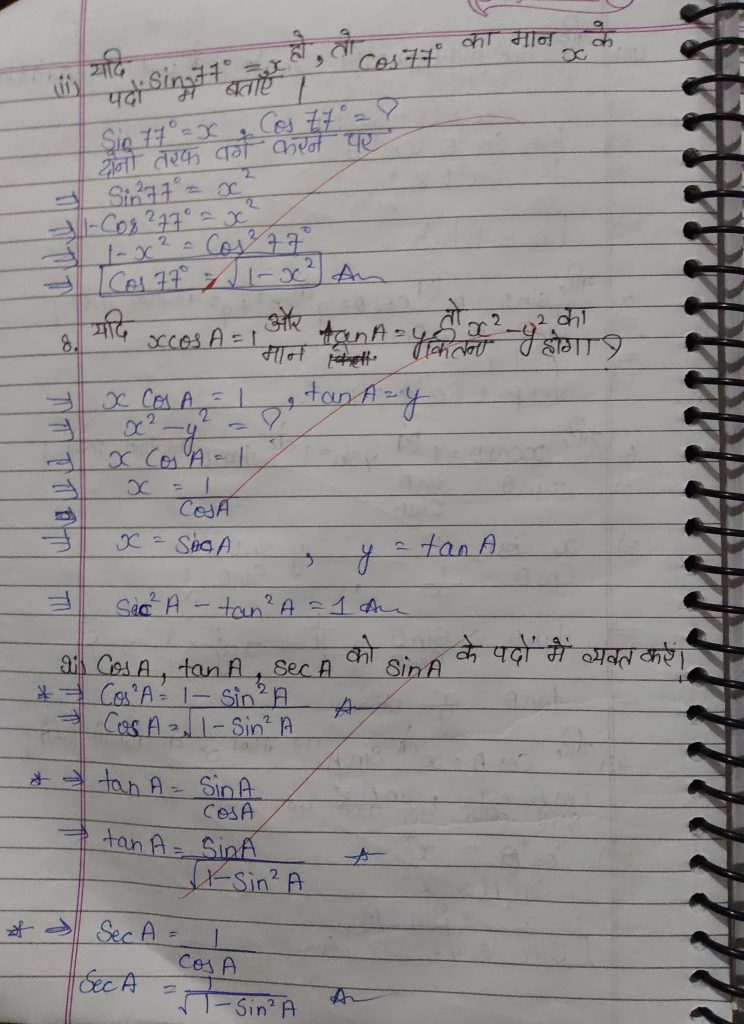 (ii) यदि sin 77° = x हो, तो cos 77° का मान x के
पदों में बताएँ।
Sin 77° = x, Cos 77° = ?
दोनों तरफ वर्ग करने पर
⇒ Sin²77° = x²
⇒ 1-Cos²77° = x²
⇒ 1-x² = Cos²77°
⇒ Cos 77° = √1-x² Ans
8. यदि x cos A = 1 और tan A = y तो x² - y² का
मान कितना होगा?
⇒ x Cos A = 1, tan A = y
⇒ x² - y² = ?
⇒ x Cos A = 1
⇒ x = 1/CosA
⇒ x = SecA, y = tan A
⇒ Sec²A - tan²A = 1 Ans
9i) Cos A, tan A, sec A को sin A के पदों में व्यक्त करें।
* ⇒ Cos²A = 1 - Sin²A
⇒ Cos A = √1-Sin²A Ans
* ⇒ tan A = SinA/CosA
⇒ tan A = SinA/√1-Sin²A A
* ⇒ Sec A = 1/CosA
Sec A = 1/√1-Sin²A Ans